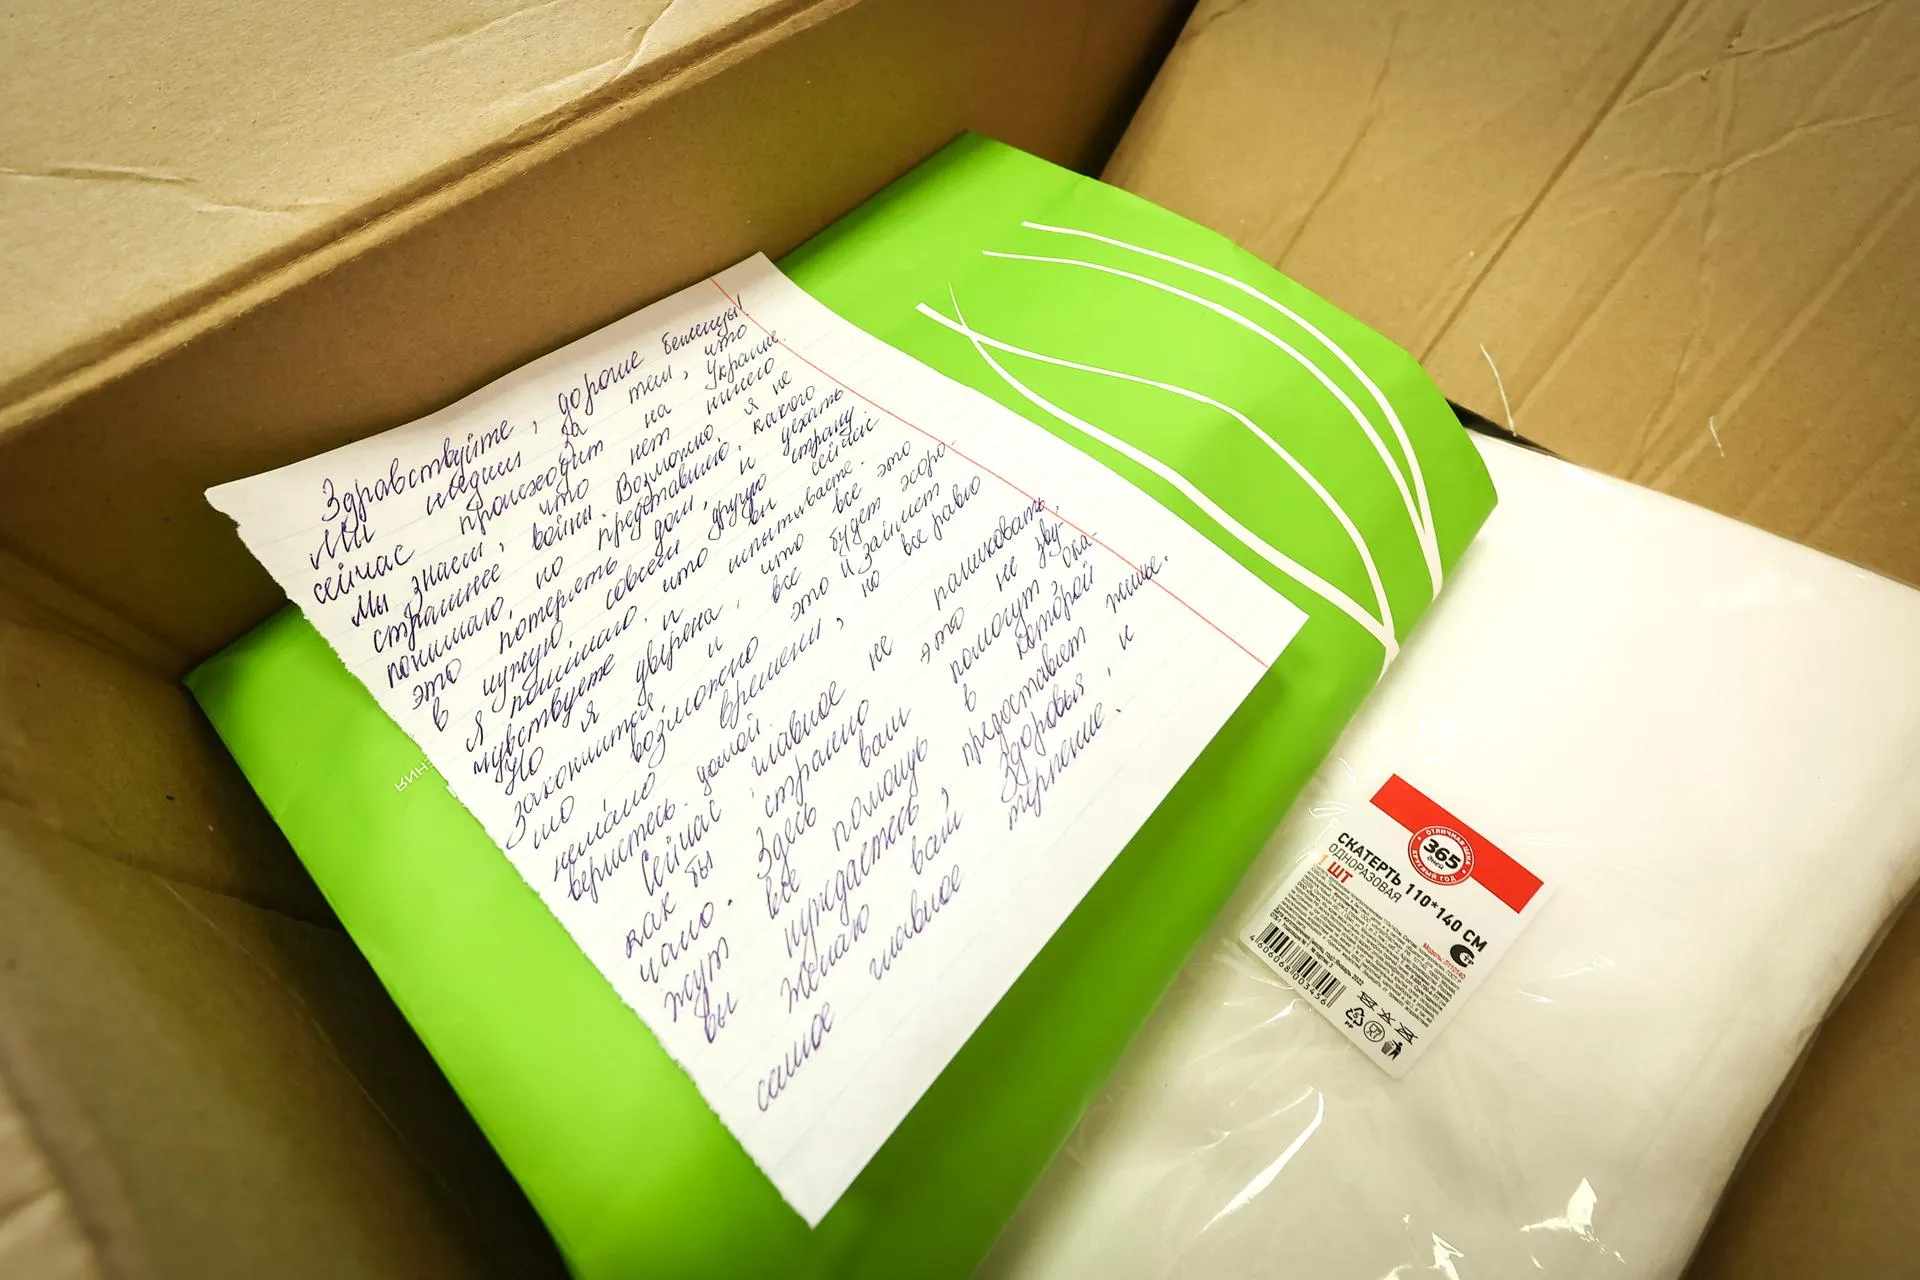 Здравствуйте, дорогие беженцы!
Мы следим за тем, что
сейчас происходит на Украине.
Мы знаем, что нет ничего
страшнее войны. Возможно, я не
понимаю, но представляю, какого
это потерять дом, и уехать
в чужую совсем другую страну
Я понимаю, что вы сейчас
чувствуете и испытываете.
Но я уверена, что все это
закончится и все будет хоро-
шо возможно это и займет
немало времени, но все равно
вернитесь домой.
Сейчас главное не паниковать,
как бы странно это не зву-
чало. Здесь вам помогут, ока-
жут все помощь в которой
вы нуждаетесь, предоставят жилье.
Желаю вам здоровья, и
самое главное терпение.
ЕНИЯ
ОТЛИЧНАЯ ЦЕНА
365
дней
КРУГЛЫЙ ГОД
СКАТЕРТЬ 110*140 СМ
ОДНОРАЗОВАЯ
1 ШТ
4 606068 003456
PP